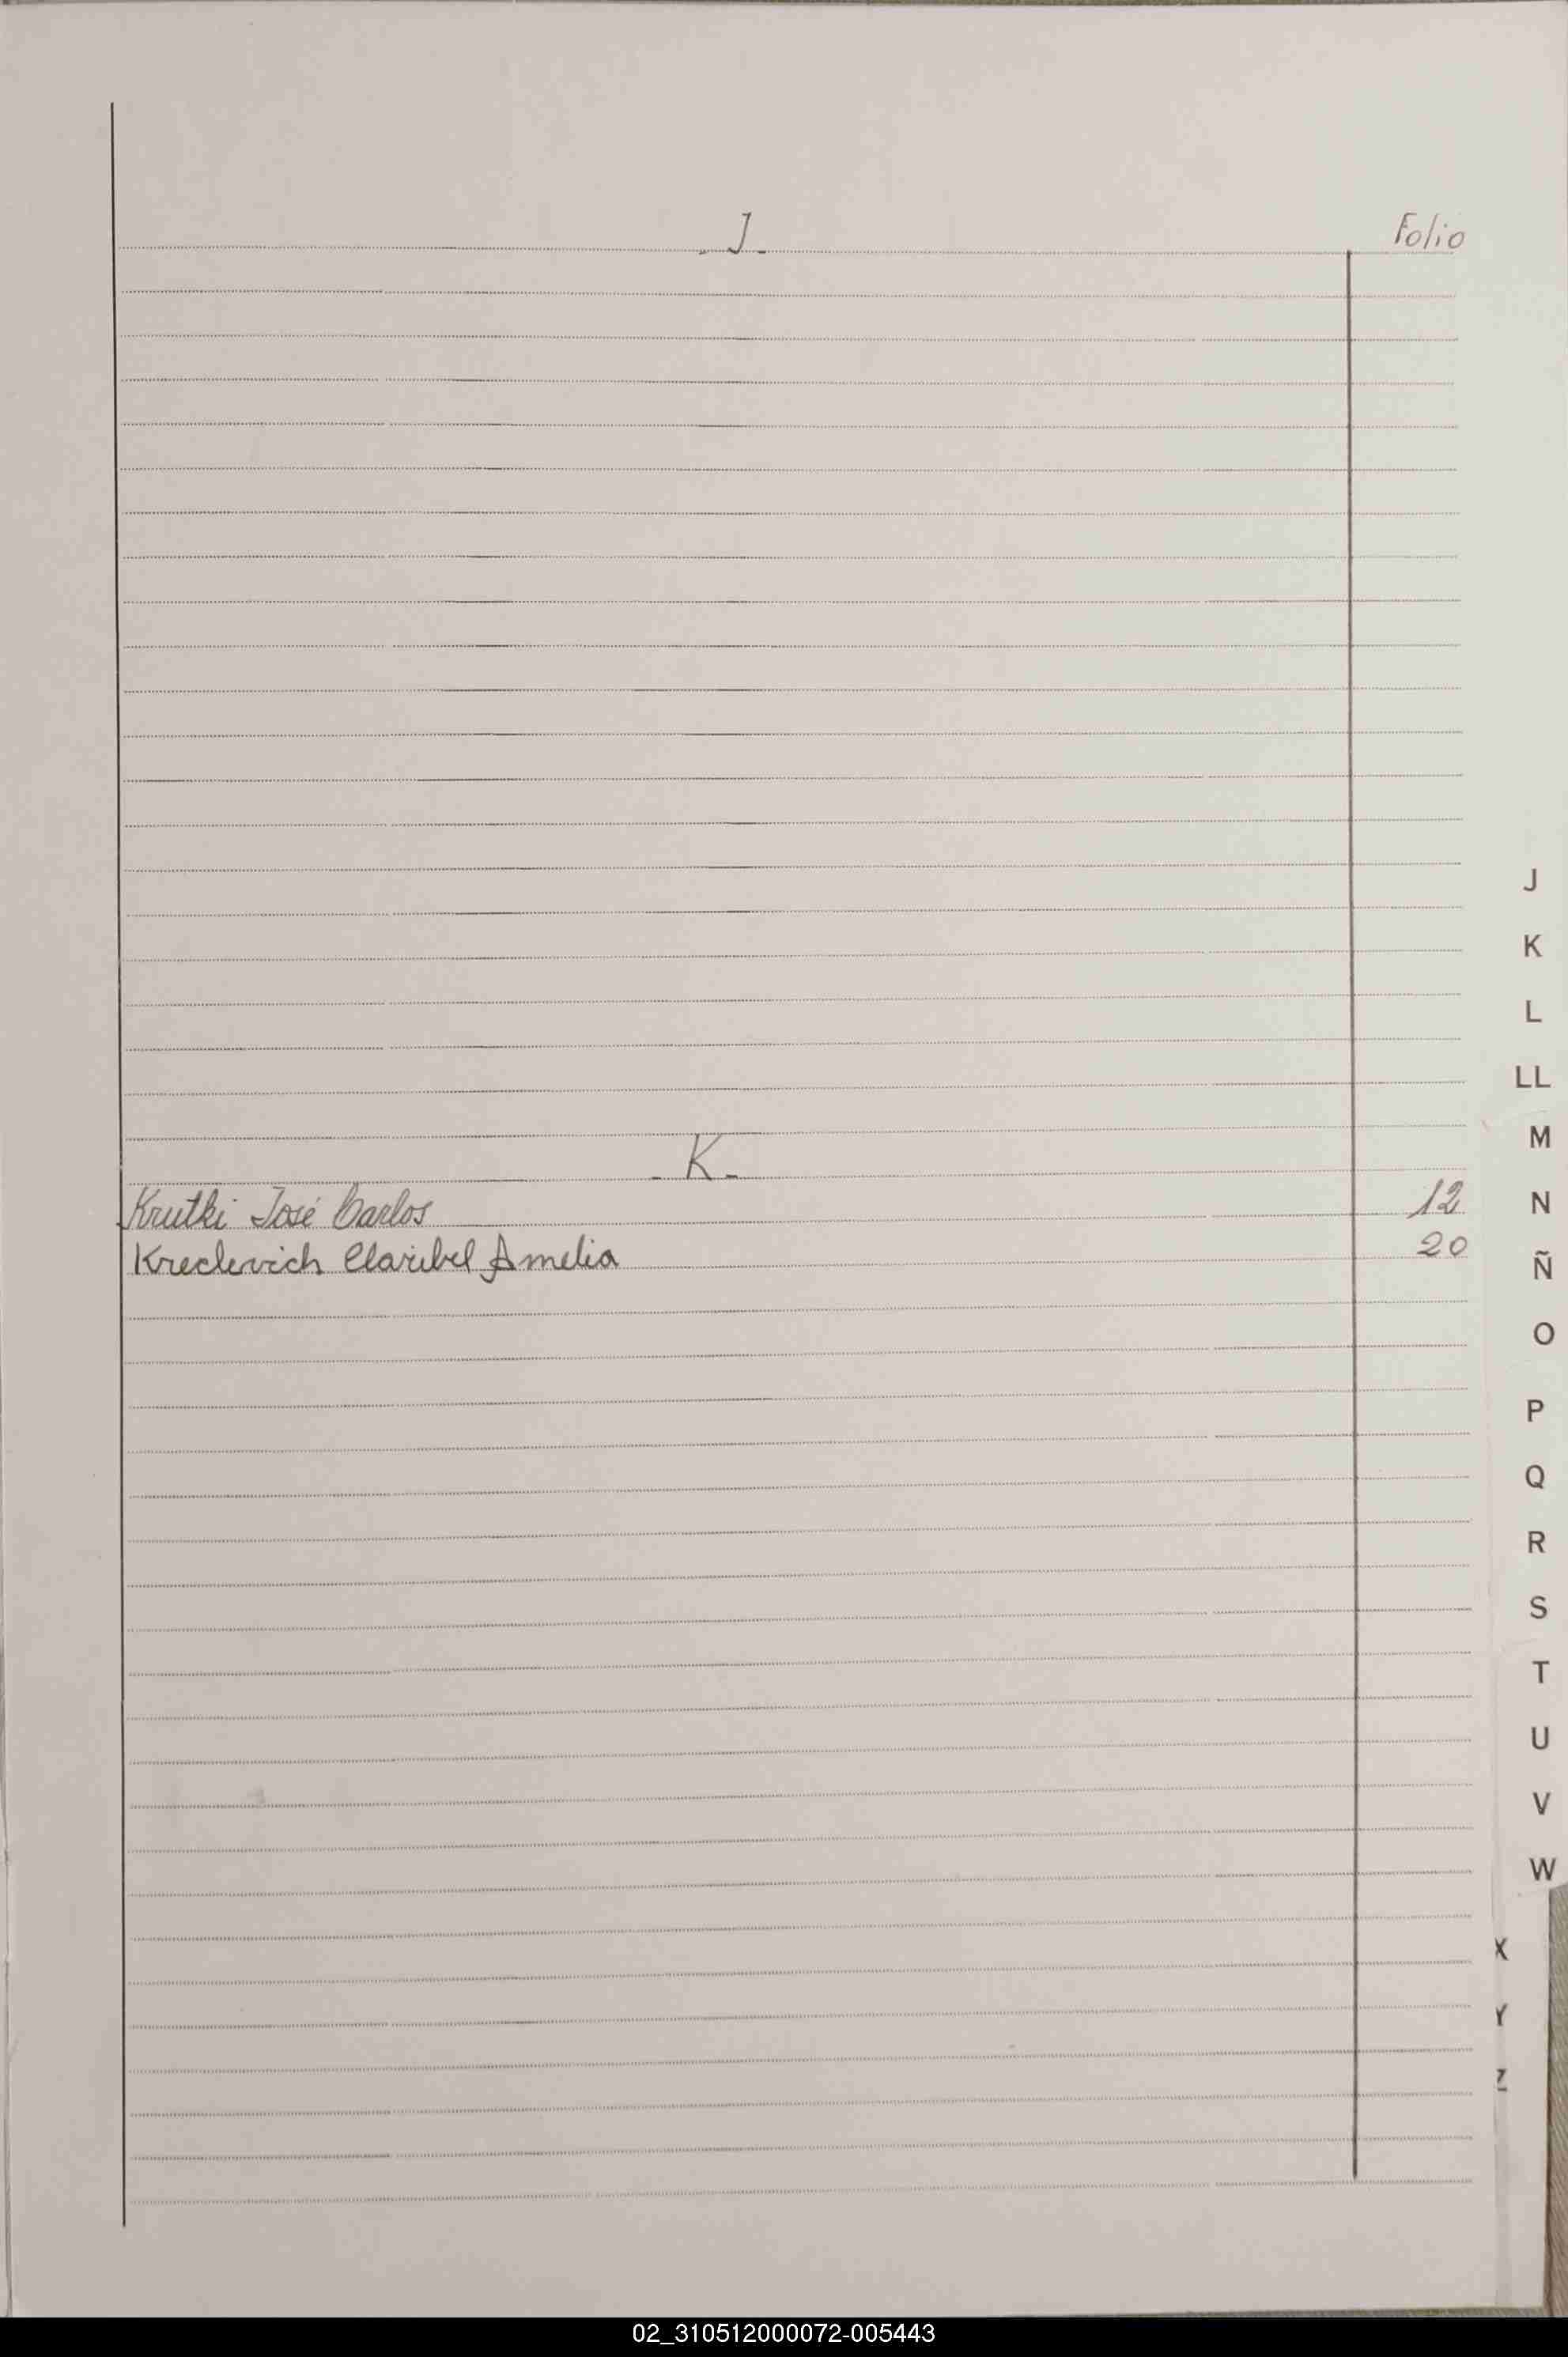 - J -
Folio
- K -
Krutki José Carlos 12
Kreclevich Claribel Amelia 20
J
K
L
LL
M
N
Ñ
O
P
Q
R
S
T
U
V
W
X
Y
Z
02_310512000072-005443